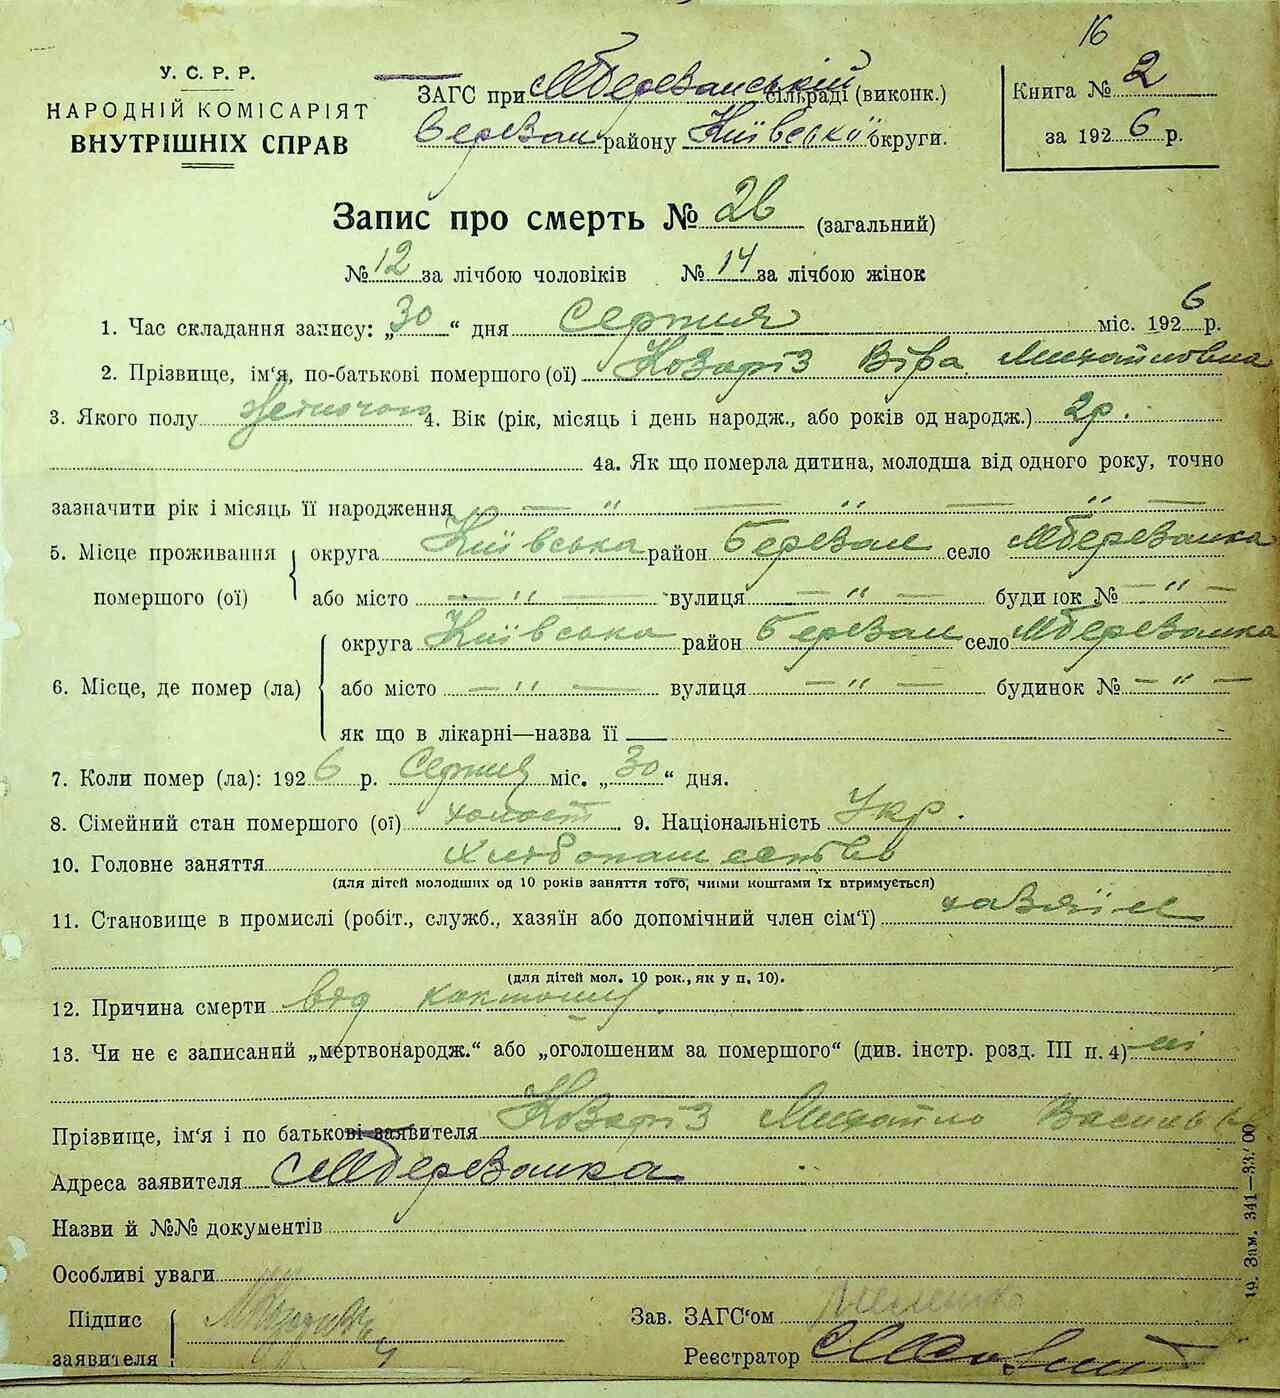 16
У. С. Р. Р.
НАРОДНІЙ КОМІСАРІЯТ
ВНУТРІШНІХ СПРАВ
ЗАГС при МБерезанській сільраді (виконк.)
Березан району Київської округи.
Книга № 2
за 1926 р.
Запис про смерть № 26 (загальний)
№ 12 за лічбою чоловиків № 14 за лічбою жінок
1. Час складання запису: „30“ дня Серпня міс. 1926 р.
2. Прізвище, ім‘я, по-батькові помершого (ої) Козаріз Віра Михайловна
3. Якого полу 4. Вік (рік, місяць і день народж., або років од народж.) 2р.
4а. Як що померла дитина, молодша від одного року, точно
зазначити рік і місяць її народження — „ — „ — „ —
5. Місце проживання округа Київська район Березан село МБерезанка
помершого (ої) або місто — „ — вулиця — „ — будинок № — „ —
округа Київська район Березан село МБерезанка
6. Місце, де помер (ла) або місто — „ — вулиця — „ — будинок № — „ —
як що в лікарні—назва її
7. Коли помер (ла): 1926 р. Серпня міс. „30“ дня.
8. Сімейний стан помершого (ої) холост 9. Національність Укр.
10. Головне заняття Хлібопашество
(для дітей молодших од 10 років заняття того, чиїми коштами їх втримується)
11. Становище в промислі (робіт., служб., хазяїн або допомічний член сім‘ї) хазяїн
(для дітей мол. 10 рок., як у п. 10).
12. Причина смерти від
13. Чи не є записаний „мертвонародж.“ або „оголошеним за помершого“ (див. інстр. розд. III п. 4) ні
Прізвище, ім‘я і по батькові заявителя Козаріз Михайло
Адреса заявителя МБерезанка
Назви й №№ документів
Особливі уваги
Підпис
заявителя
Зав. ЗАГС‘ом
Реєстратор
19. Зам. 341—33.000